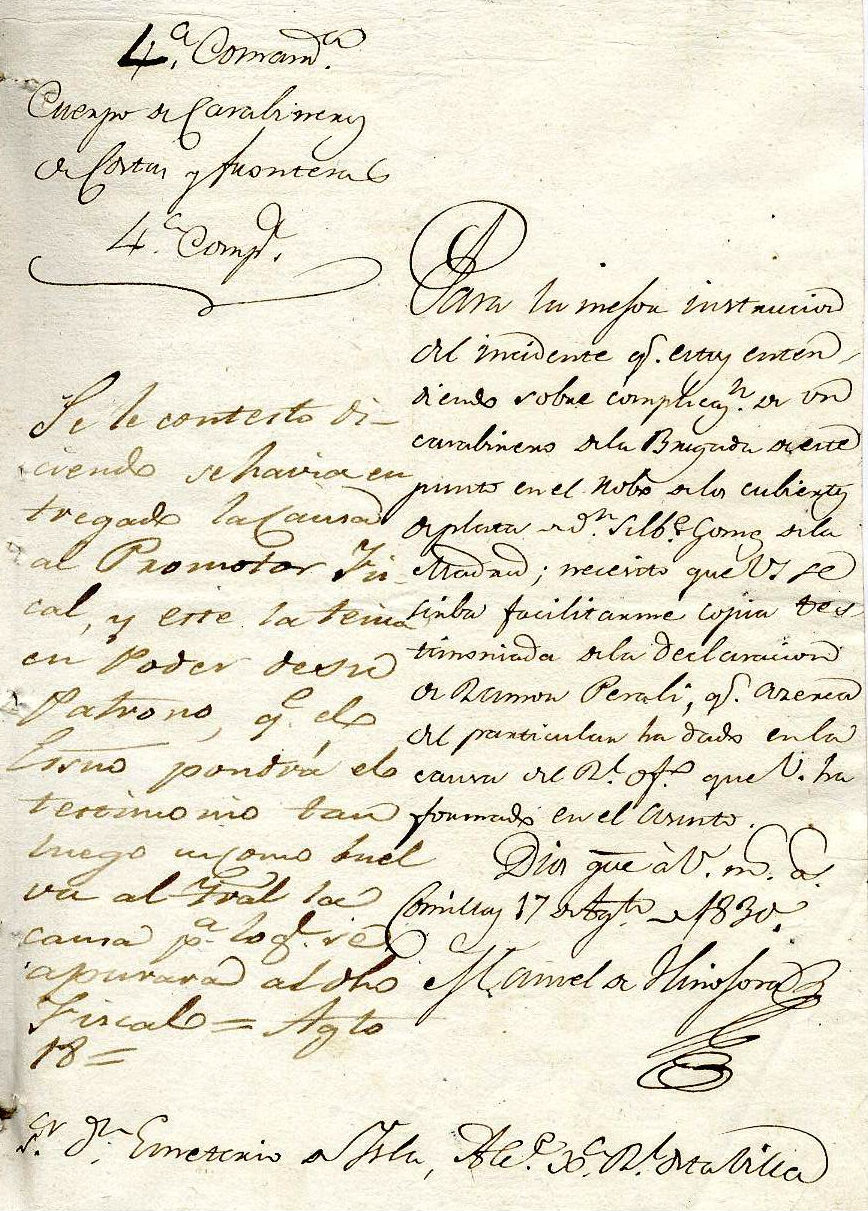 4.ª Comand.ª
Cuerpo de Carabineros
de Costas y fronteras
4.ª Comp.ª
Para la mejor instrucion
del incidente q.e estoy enten-
diendo sobre complicaz.n de un
carabinero de la Brigada de este
punto en el Robo de los cubiertos
de plata de d.n Silb.e Gomz de la
Madrid; necesito que V. se
sirba facilitarme copia tes-
timoniada de la declaracion
de Ramon Perali, q.e azerca
del particular ha dado en la
causa del R.l of.o que V. ha
formado en el asunto.
Dios gue à V. m.s a.s
Comillas 17 de Agto de 1830.
Manuel de Hinojosa
Se le contesto di-
ciendo se havia en
tregado la Causa
al Promotor Fis-
cal, y este la tenia
en Poder de su
Patrono, q.e el
Essno pondrá el
testimonio tan
luego como buel
va al Tral la
causa p.a lo q.e se
apurará al dho
Fiscal = Agto
18 =
S.or d.n Emeterio de Isla, Alc.e R.l de esta Villa